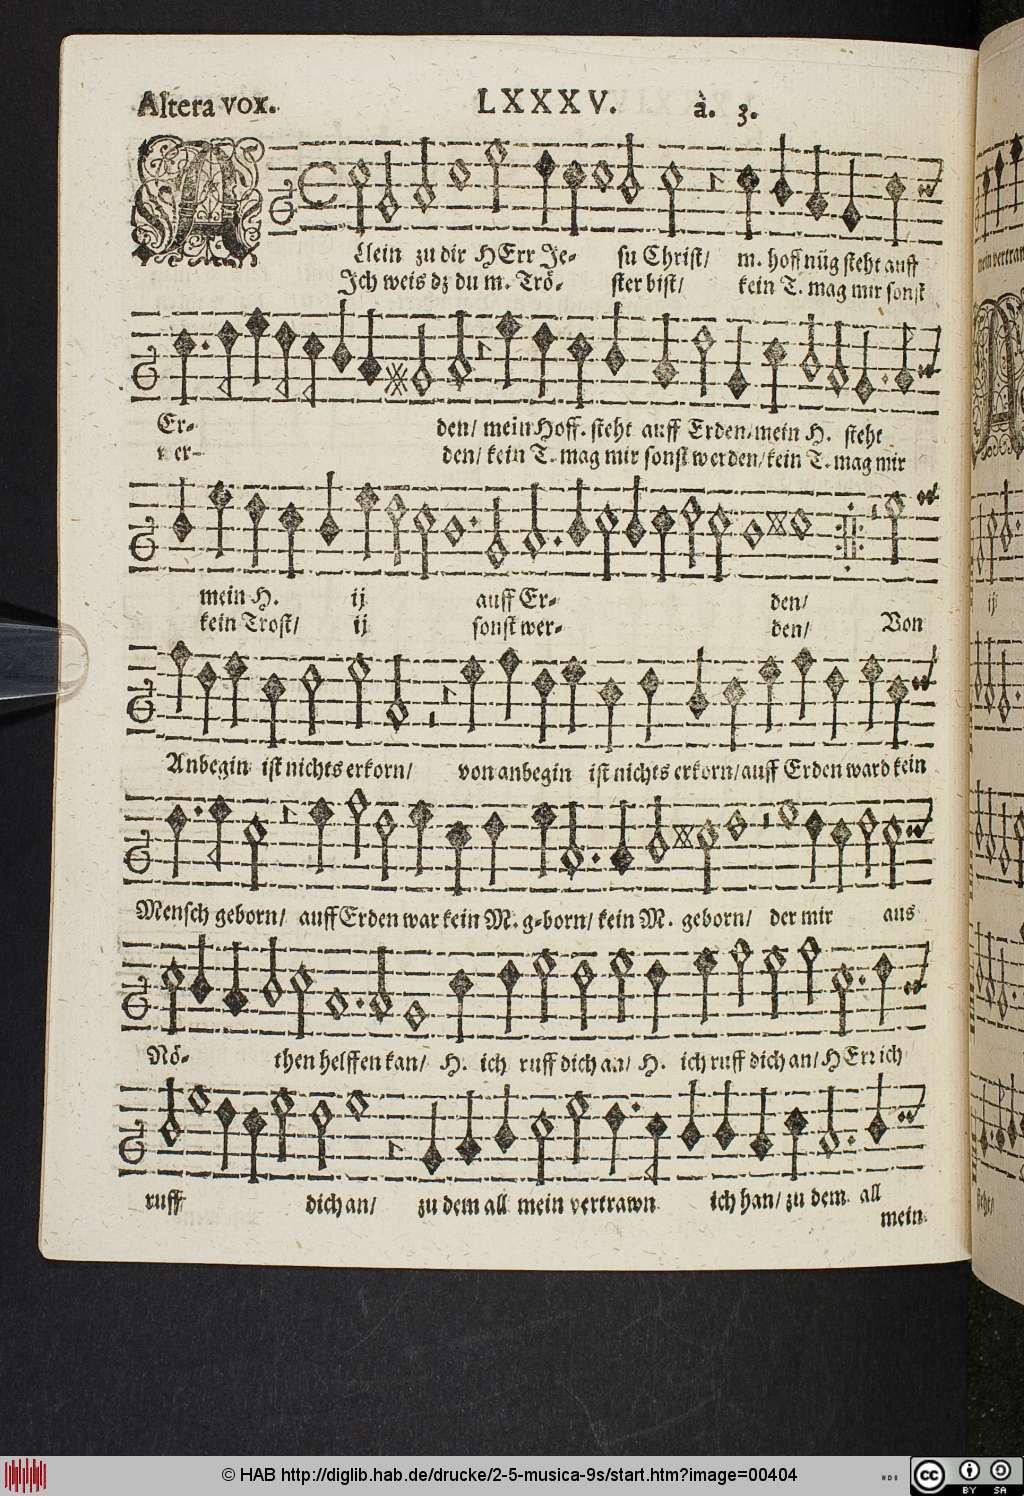 Altera vox.
LXXXV.
à. 3.
Allein zu dir HErr Je- su Christ/ m. hoffnũg steht auff
Ich weis dz du m. Trö- ster bist/ kein T. mag mir sonst
Er- den/ mein Hoff. steht auff Erden/mein H. steht
wer- den/ kein T. mag mir sonst werden/kein T. mag mir
mein H. ij auff Er- den/
kein Trost/ ij sonst wer- den/ Von
Anbegin ist nichts erkorn/ von anbegin ist nichts erkorn/auff Erden ward kein
Mensch geborn/ auff Erden war kein M. g-born/ kein M. geborn/ der mir aus
Nö- then helffen kan/ H. ich ruff dich an/ H. ich ruff dich an/ HErr ich
ruff dich an/ zu dem all mein vertrawn ich han/ zu dem all
mein
mein vertran
ij
© HAB http://diglib.hab.de/drucke/2-5-musica-9s/start.htm?image=00404
cc
BY SA